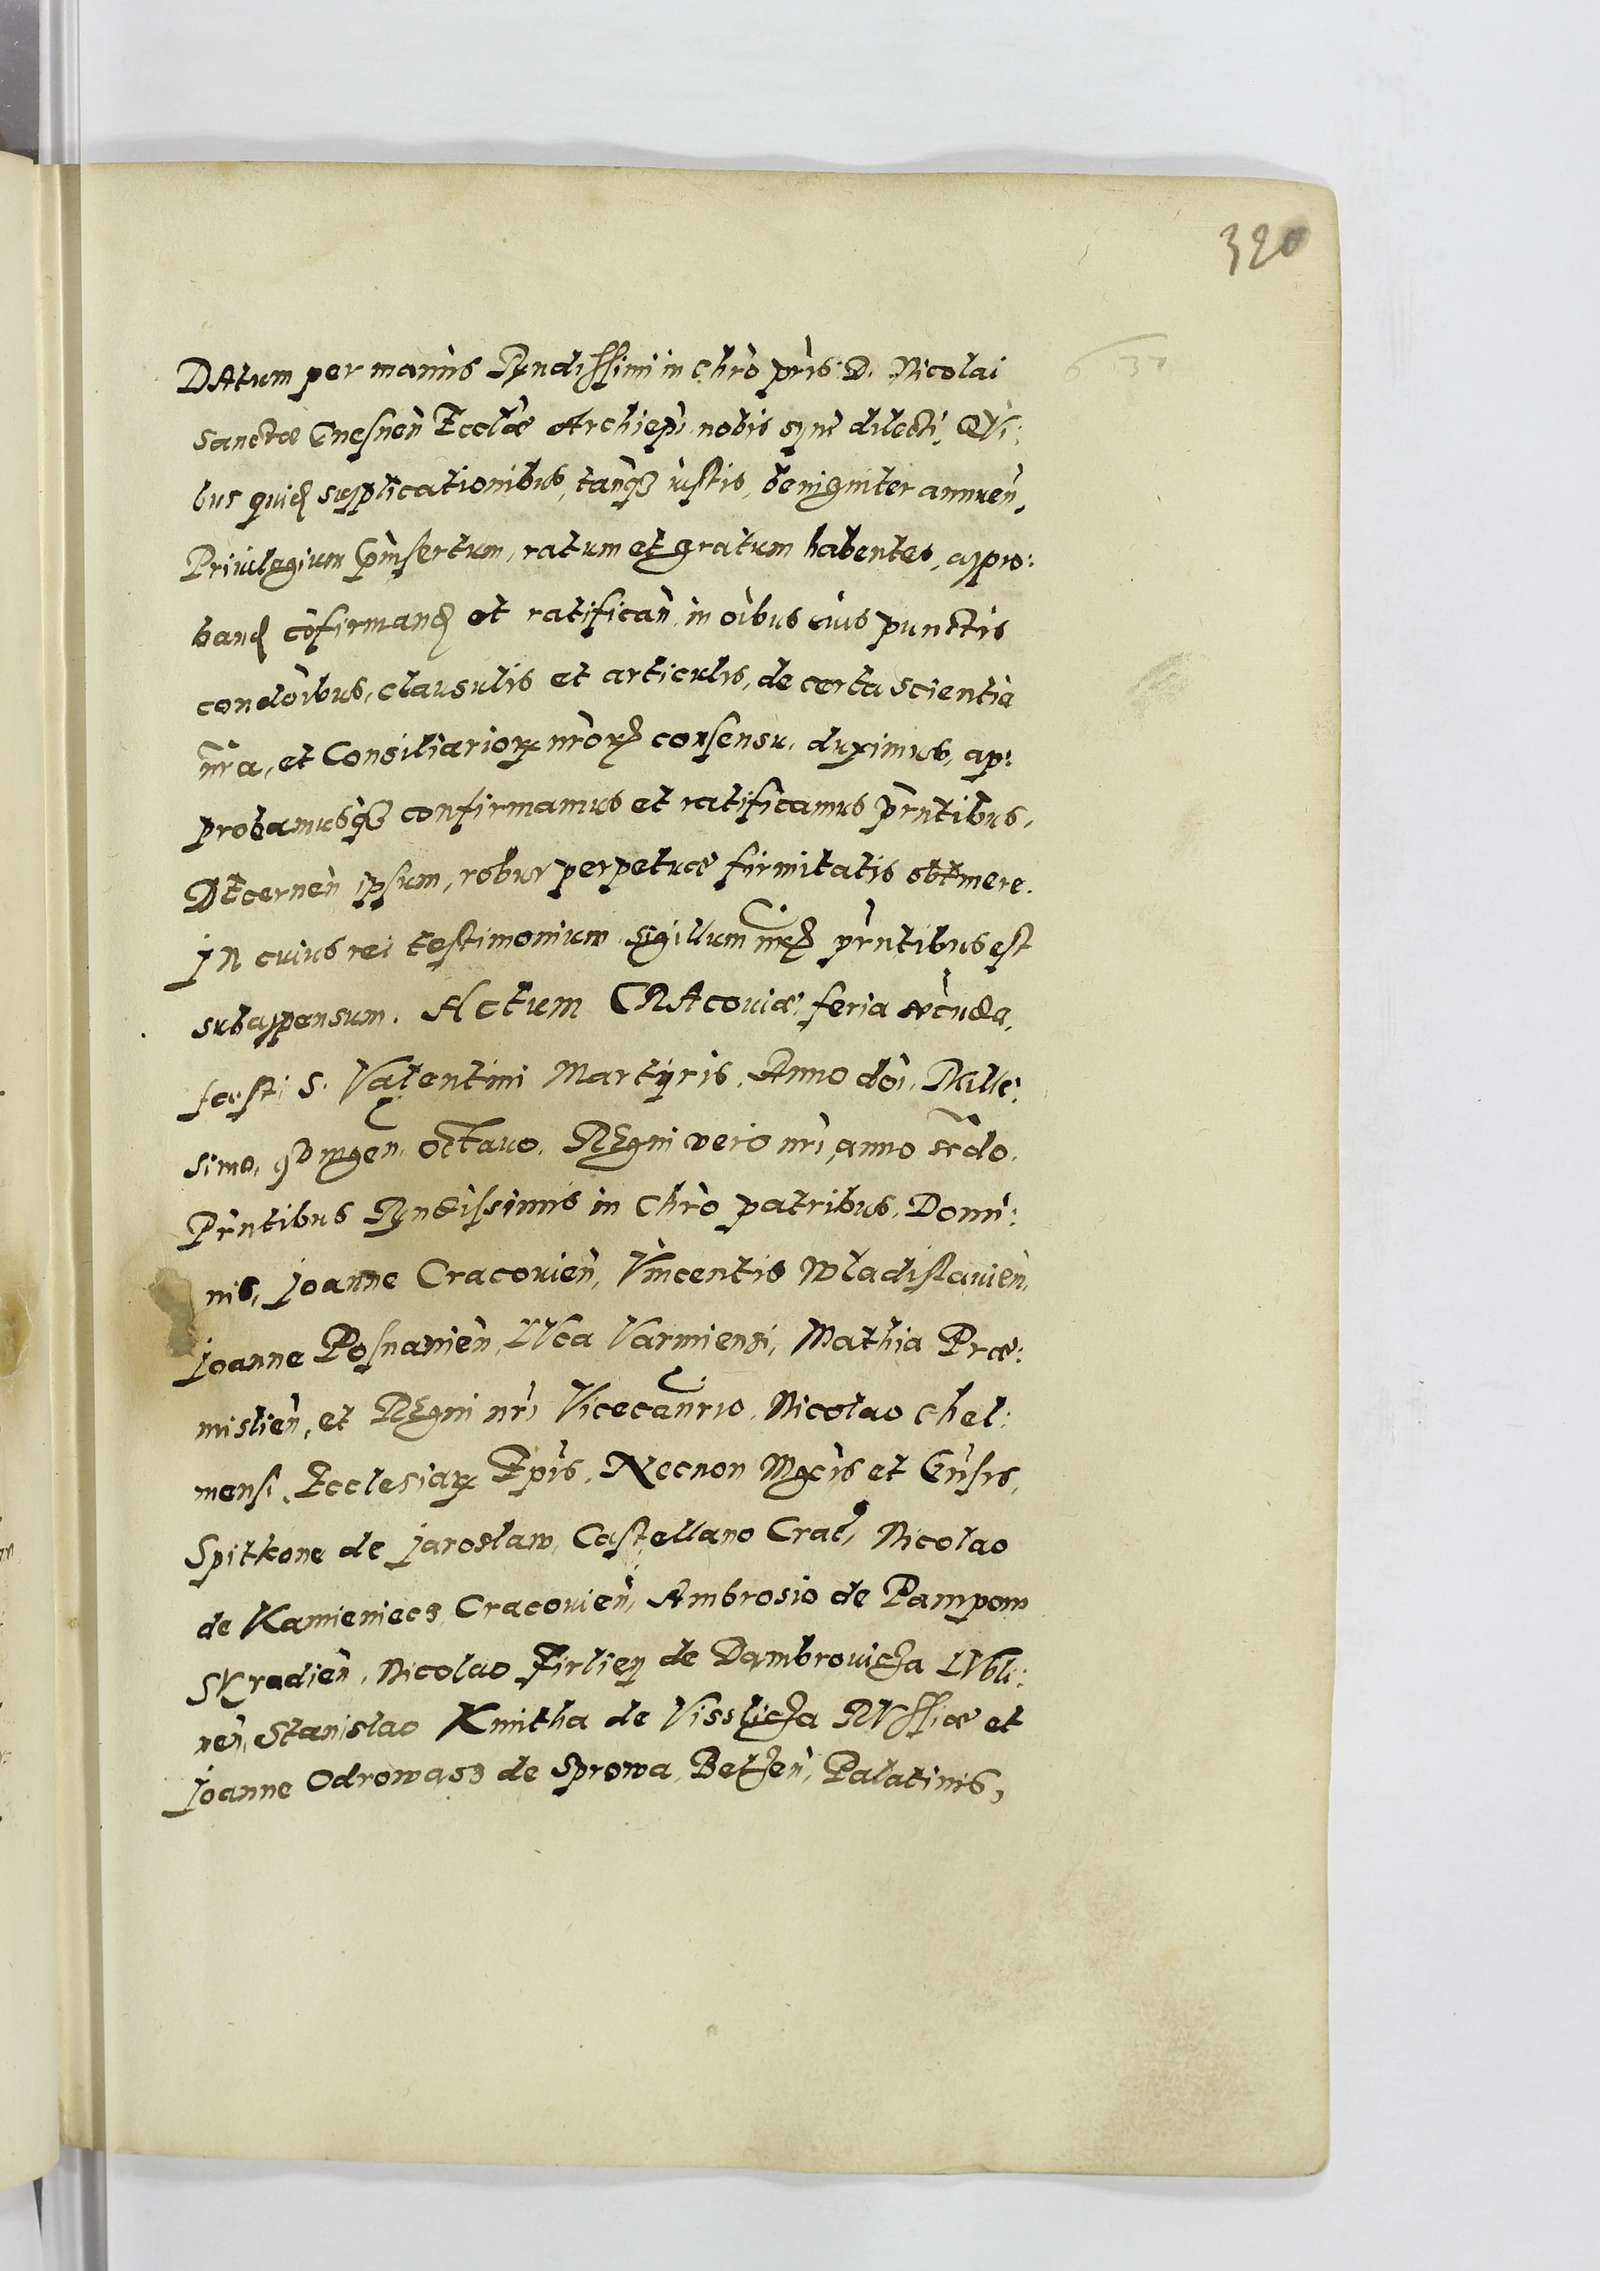 320
DAtum per manus Rvndissimi in Chro pris D. Nicolai
Sanctæ Gnesnen Ecclae Archiepi nobis syne dilecti, QVi:
bus quid supplicationibus, tanq3 iustis, benigniter annuen,
Priuilegium pinsertum, ratum et gratum habentes, appro:
band cofirmand et ratifican in oibus eius punctis
condoibus, clausulis et articulis, de certa scientia
nra, et Consiliarior nror consensu, duximus, ap:
probamusq3 confirmamus et ratificamus prntibus,
DEcernen ipsum, robur perpetuæ firmitatis obtinere.
IN cuius rei testimonium sigillum nrm prntibus est
subappensum. Actum CRAcouiæ, feria secuda,
festi S. Valentini Martyris, Anno doi, Mille:
simo, qVingen, Octauo, REgni vero nri, anno scdo.
Prntibus Rvndissimis in Chro patribus, Domi:
nis, Joanne Cracouien, Vincentio Wladislauien,
Joanne Posnanien, LVca Varmiensi, Mathia Præ:
mislien, et REgni nri Vicecanrio, Nicolao Chel:
mensi, Ecclesiar Epis, Necnon Mgcis et Gnsis,
Spitkone de Jaroslaw, Castellano Crac, Nicolao
de Kamieniecz Cracouien, Ambrosio de Pampow
SYradien, Nicolao Firliey de Dambrouicza LVbli:
nen, Stanislao Kmitha de Visslicza RVssiæ et
Joanne Odrowasz de Sprowa, Belzen, Palatinis,